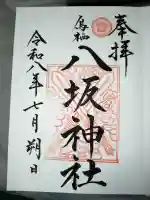 奉拝
鳥栖
八坂神社
令和八年七月朔日